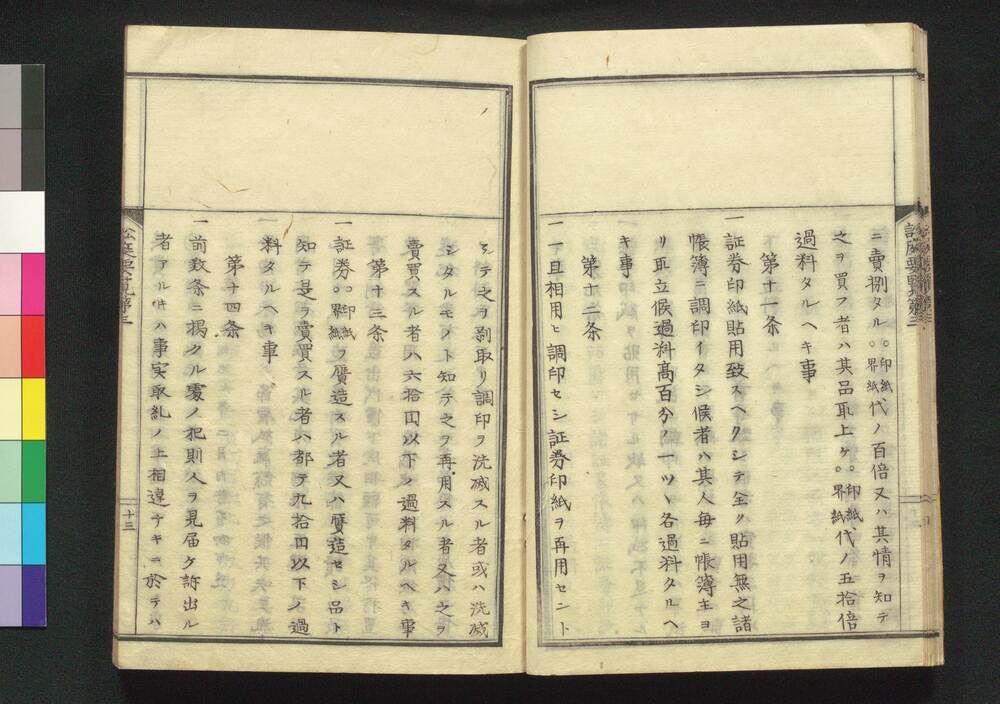 ニ賣捌タル。印紙界紙代ノ百倍又ハ其情ヲ知テ
之ヲ買フ者ハ其品取上ケ。印紙界紙代ノ五拾倍
過料タルヘキ事
第十一条
一証券印紙貼用致スヘクシテ全ク貼用無之諸
帳簿ニ調印イタシ候者ハ其人毎ニ帳簿主ヨ
リ取立候過料高百分ノ一ツヽ各過料タルヘ
キ事
第十二条
一一旦相用ヒ調印セシ証券印紙ヲ再用セント
シテ之ヲ剥取リ調印ヲ洗滅スル者或ハ洗滅
シタルモノト知テ之ヲ再用スル者又ハ之ヲ
賣買スル者ハ六拾円以下ノ過料タルヘキ事
第十三条
一証券。印紙界紙ヲ贋造スル者又ハ贋造セシ品ト
知テ是ヲ賣買スル者ハ都テ九拾円以下ノ過
料タルヘキ事
第十四条
一前数条ニ掲クル處ノ犯則人ヲ見届ケ訴出ル
者アル時ハ事実取糺ノ上相違ナキニ於テハ
十三